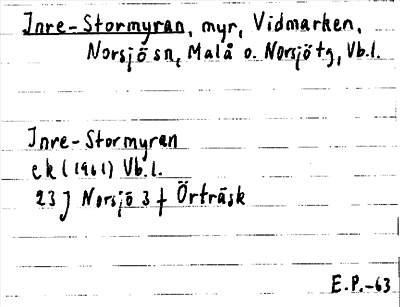 Inre-Stormyran, myr, Vidmarken,
Norsjö sn, Malå o. Norsjö tg, Vb.l.
Inre-Stormyran
ek (1961) Vb.l.
23 J Norsjö 3 f Örträsk
E.P.-63